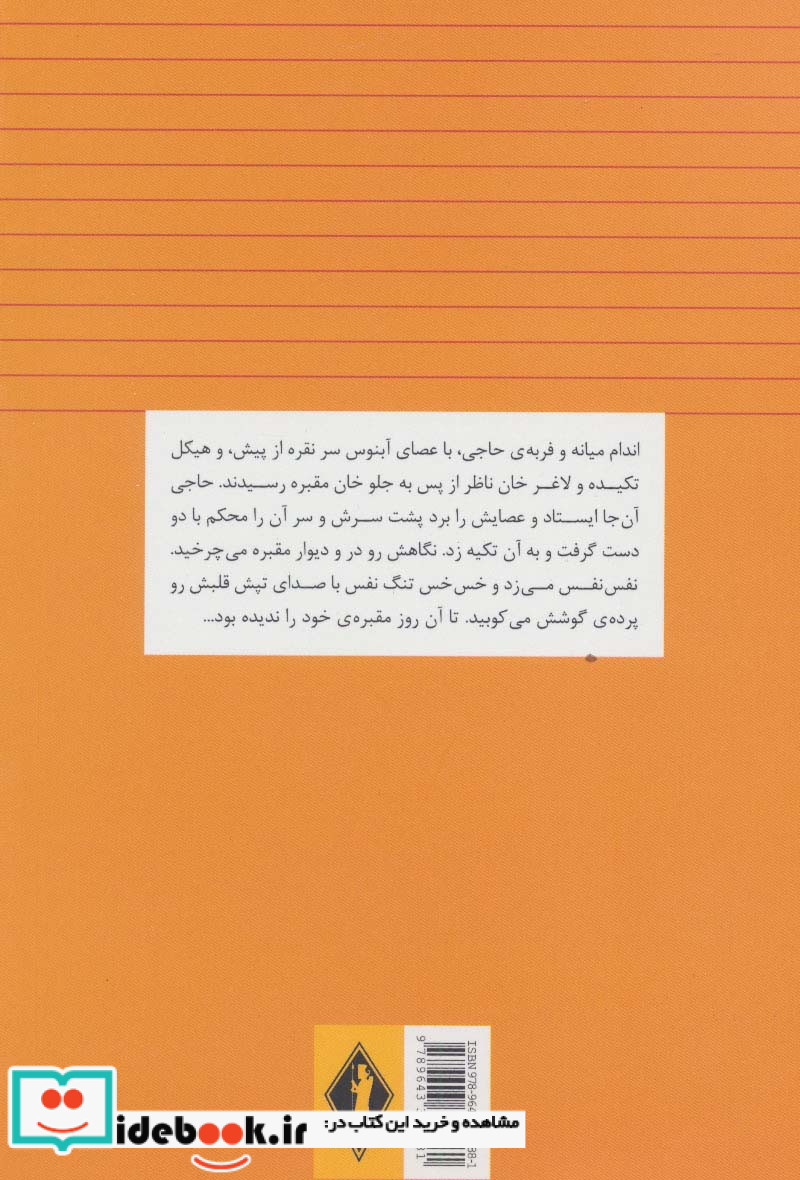 اندام میانه و فربه‌ی حاجی، با عصای آبنوس سر نقره از پیش، و هیکل
تکیـده و لاغـر خان ناظر از پس به جلو خان مقبره رسیدند. حاجی
آن‌جا ایستاد و عصایش را برد پشت سرش و سر آن را محکم با دو
دست گرفت و به آن تکیه زد. نگاهش رو در و دیوار مقبره می‌چرخید.
نفس‌نفس می‌زد و خس‌خس تنگ نفس با صدای تپش قلبش رو
پرده‌ی گوشش می‌کوبید. تا آن روز مقبره‌ی خود را ندیده بود...
ISBN 978-964
88-1
9 789643
مشاهده و خرید این کتاب در:
idebook.ir